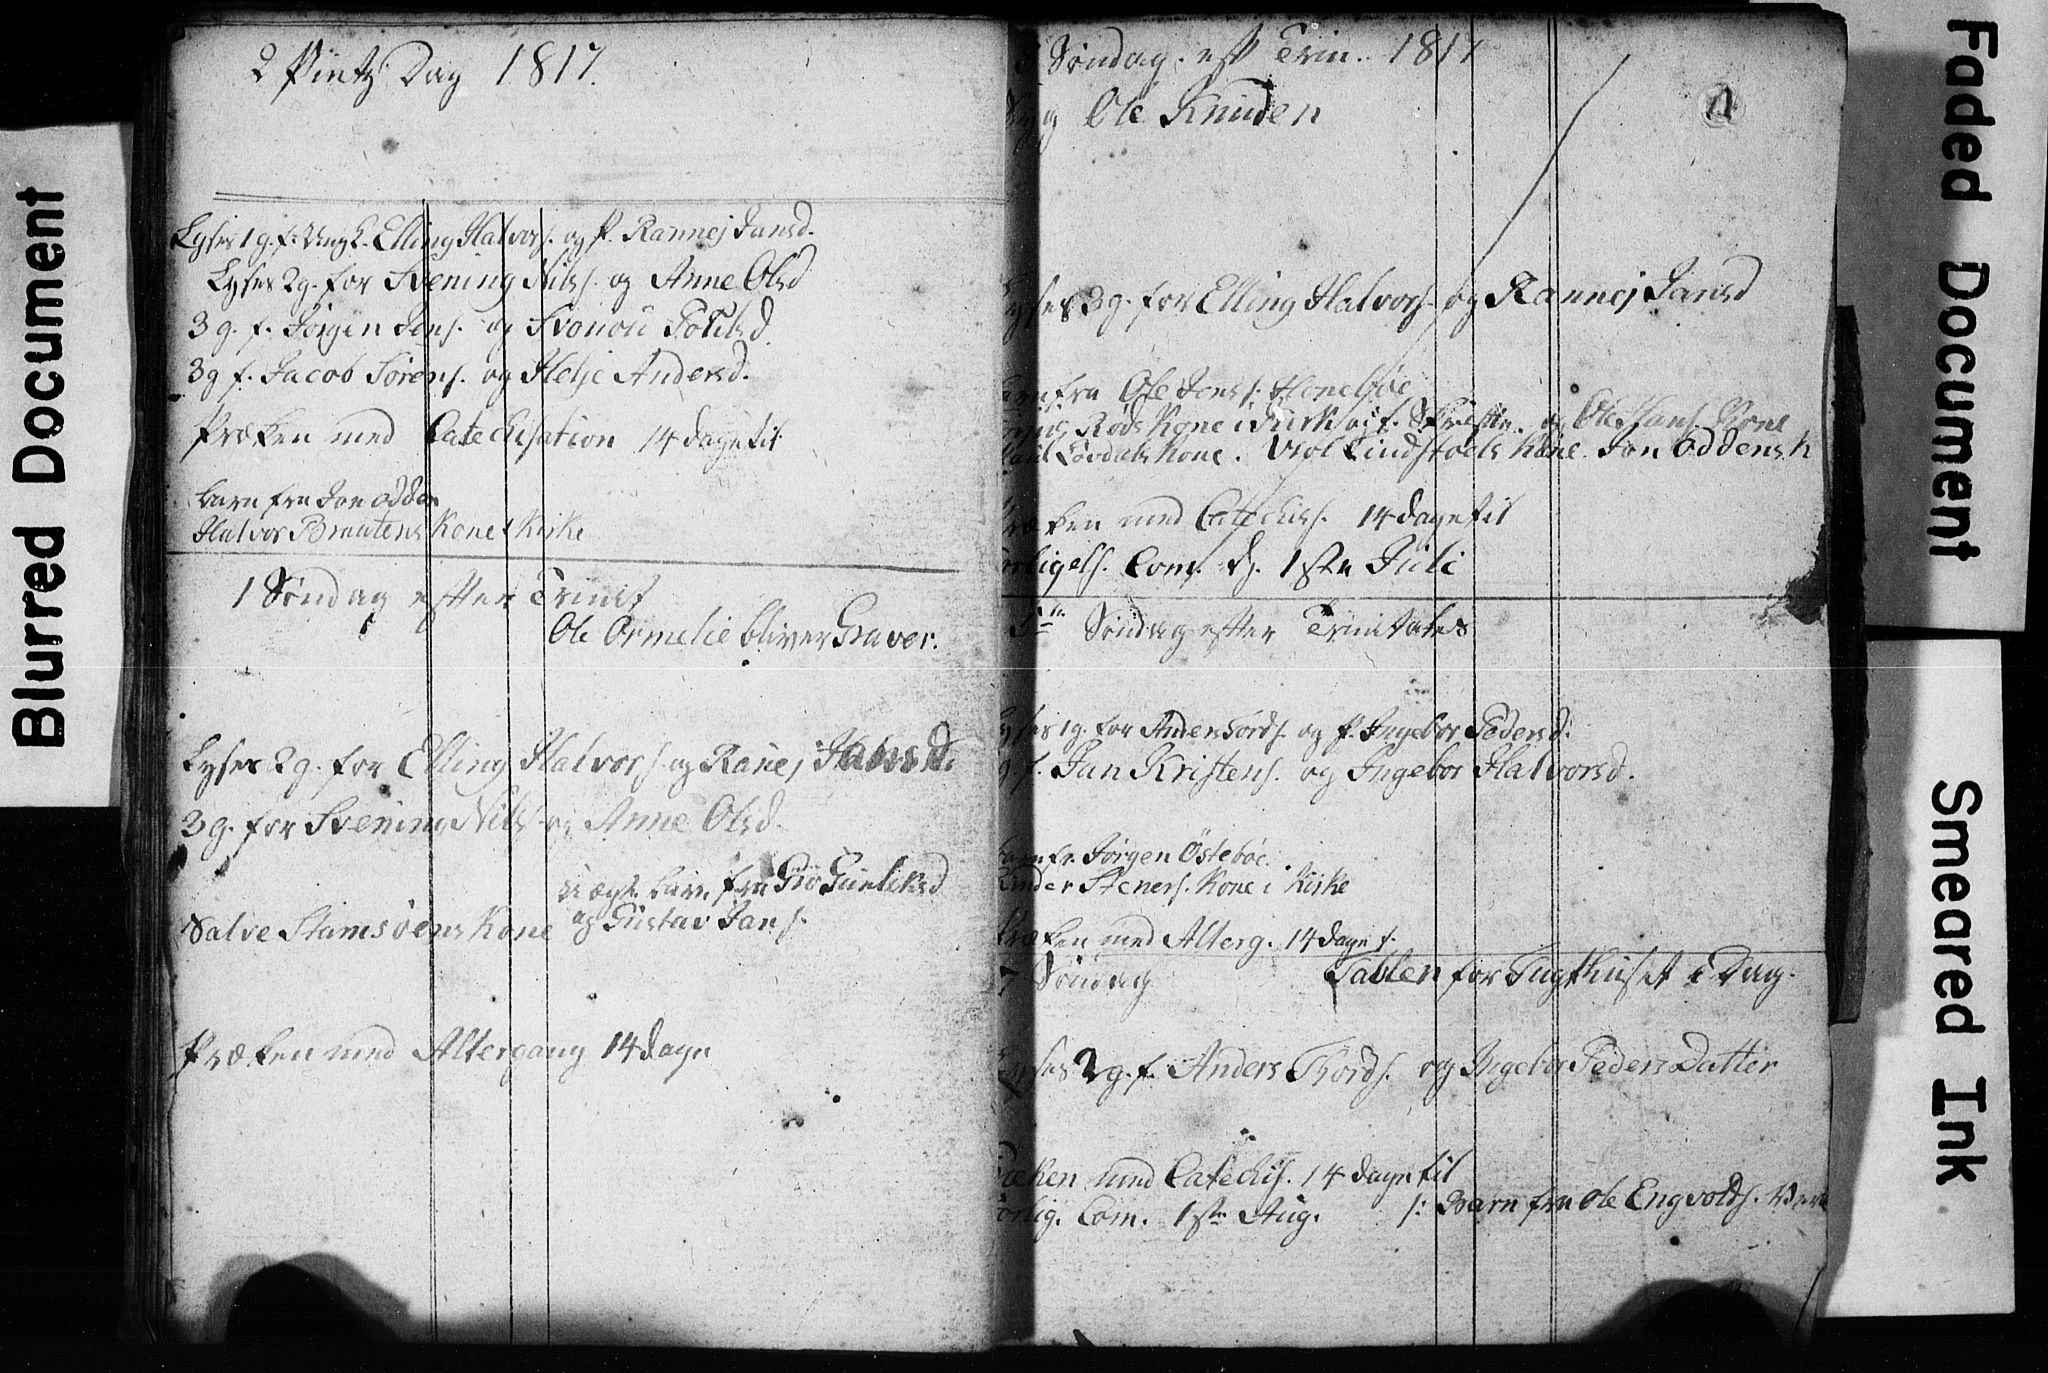 2 Pintz Dag 1817.
Lyses 1 g. f. Ungk. Elling Halvors. og P. Rannej Jansd.
Lyses 2g. for Svening Nils. og Anne Olsd
3 g. f. Jørgen Jens. og
3 g f. Jacob Sørens. og Helje Andersd.
Præken med Catechisation 14 dage til
barn fra Jon odden
Halvor Braatens Kone i Kirke
1 Søndag efter Trinit
Ole Ormelie bliver Graver.
Lyses 2 g. for Elling Halvors. og Ranej Jansd.
3 g. for Svening Nils. og Anne Olsd.
uægte barn fra Gro Gunleksd
og Gustav Jans.
Salve Stamsøens Kone
Præken med Altergang 14 dage
3 Søndag. eft Trin. 1817
Ole Knuden
Lyses 3 g. for Elling Halvors. og Rannej Jansd
barn fra Ole Jens.
Røds Kone i Kirk og Ole Hans. Kone
Løvdals Kone. Lindstoels Kone. Jon Oddens K
Præken med Catechis. 14 dage til
Forligels. Com. d. 1ste Juli
5te Søndag efter Trinitates
Lyses 1 g. for Anders Tords. og P. Ingebor Pedersd.
g. f. Jan Kristens. og Ingebor Halvorsd.
barn fr. Jørgen Östebøe
Steners. Kone i Kirke
Præken med Alterg. 14 dage t.
7 Søndag Tablen for Tugthuset i Dag.
Lyses 2 g. f. Anders Thords. og Ingebor Peders Datter
Præken med Catechis. 14 dage til
Forlig. Com. 1ste Aug. /: Barn fra Ole Engvolds.
Blurred Document
Faded Document
Smeared Ink